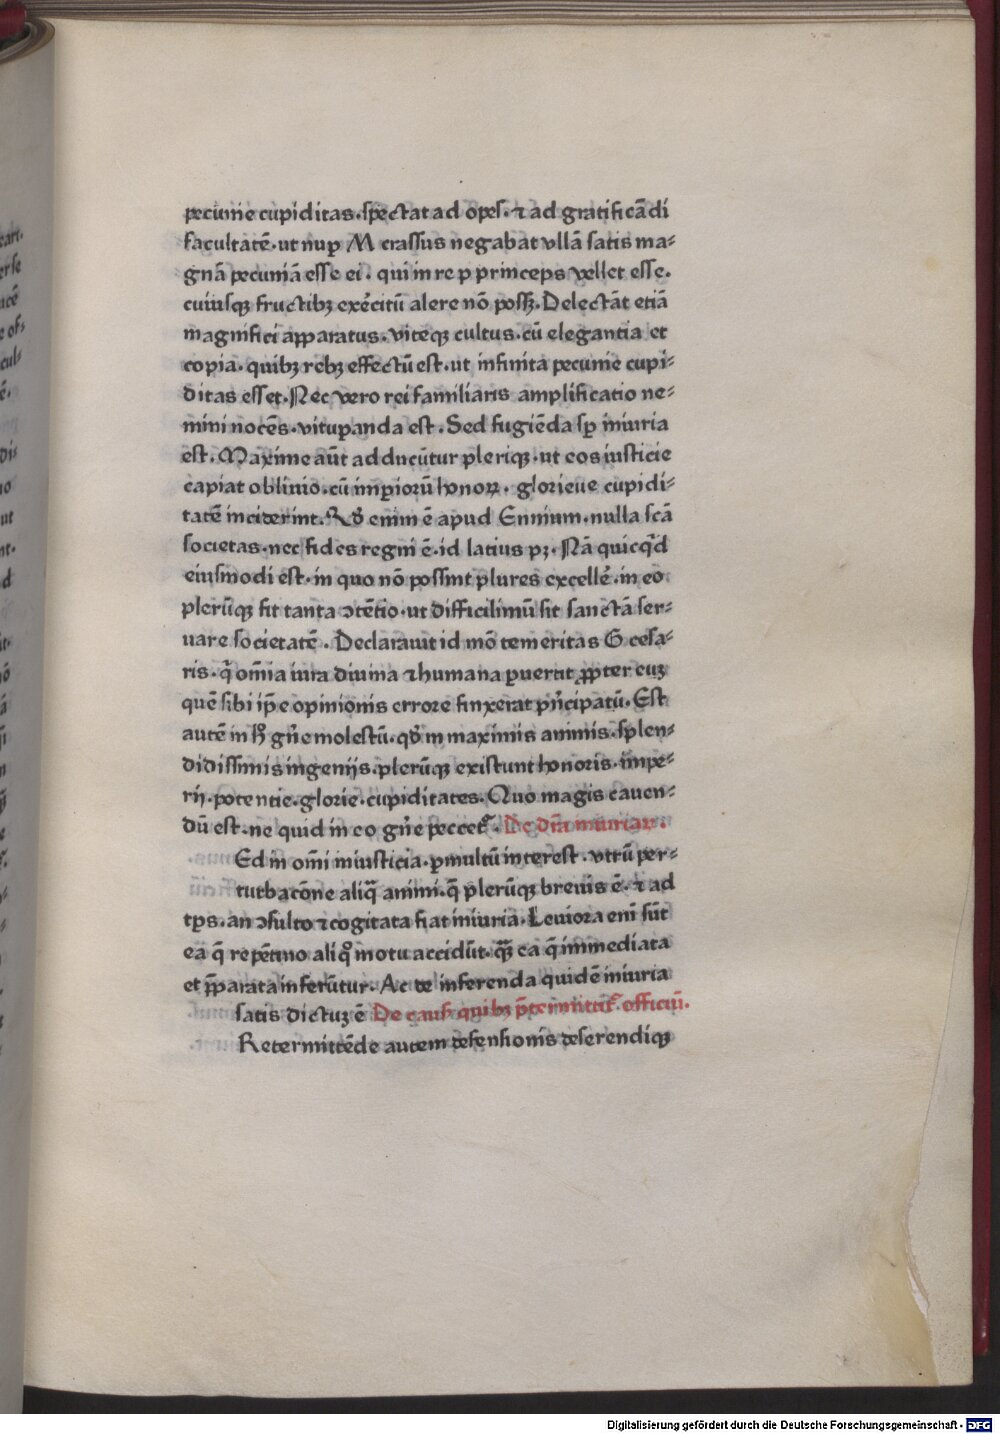 pecunie cupiditas. spectat ad opes. ⁊ ad gratificādi
facultatē. ut nuꝑ M crassus negabat vllā satis ma⸗
gnā pecuniā esse ei. qui in re p princeps vellet esse.
cuiusqꝫ fructibꝫ exercitū alere nō possꝫ. Delectāt etiā
magnifici apparatus. viteqꝫ cultus. cū elegantia et
copia. quibꝫ rebꝫ effectū est. ut infinita pecunie cupi⸗
ditas esset. Nec vero rei familiaris amplificatio ne⸗
mini nocēs. vituꝑanda est. Sed fugiēda sꝑ iniuria
est. Maxime aūt adducūtur pleriqꝫ. ut eos iusticie
capiat obliuio. cū imꝑiorū honoꝝ. glorieue cupidi⸗
tatē inciderint. Qd' enim ē apud Ennium. nulla scā
societas. nec fides regni ē. id latius pꝫ. Nā quicq̄d
eiusmodi est. in quo nō possint plures excelle'. in eo
plerūqꝫ fit tanta ↄtētio. ut difficilimū sit sanctā ser⸗
uare societatē. Declarauit id mō temeritas G cesa⸗
ris. q' om̄ia iura diuina ⁊ humana ꝑuertit ꝓpter euꝫ
quē sibi ip̄e opinionis errore finxerat pn'cipatū. Est
autē in h° gn'e molestū. qd' in maximis animis. splen⸗
didissimis ingenijs. plerūqꝫ existunt honoris. impe⸗
rij. potentie. glorie. cupiditates. Quo magis cauen⸗
dū est. ne quid in eo gn'e peccet᷑. De dr̄ia iniuriaꝝ.
Ed in om̄i iniusticia. ꝑmultū interest. vtrū per⸗
turbacōne aliq̄ animi. q̄ plerūqꝫ breuis ē. ⁊ ad
tꝑs. an ↄsulto ⁊ cogitata fiat iniuria. Leuiora eni' sūt
ea q̄ repētino aliq° motu accidūt. q̄ꝫ ea q̄ immediata
et p̄parata inferūtur. Ac de inferenda quidē iniuria
satis dictuꝫ ē De caus' quibꝫ p̄termittit᷑ officiū.
Retermittēde autem defensionis deserendiqꝫ
Digitalisierung gefördert durch die Deutsche Forschungsgemeinschaft - DFG